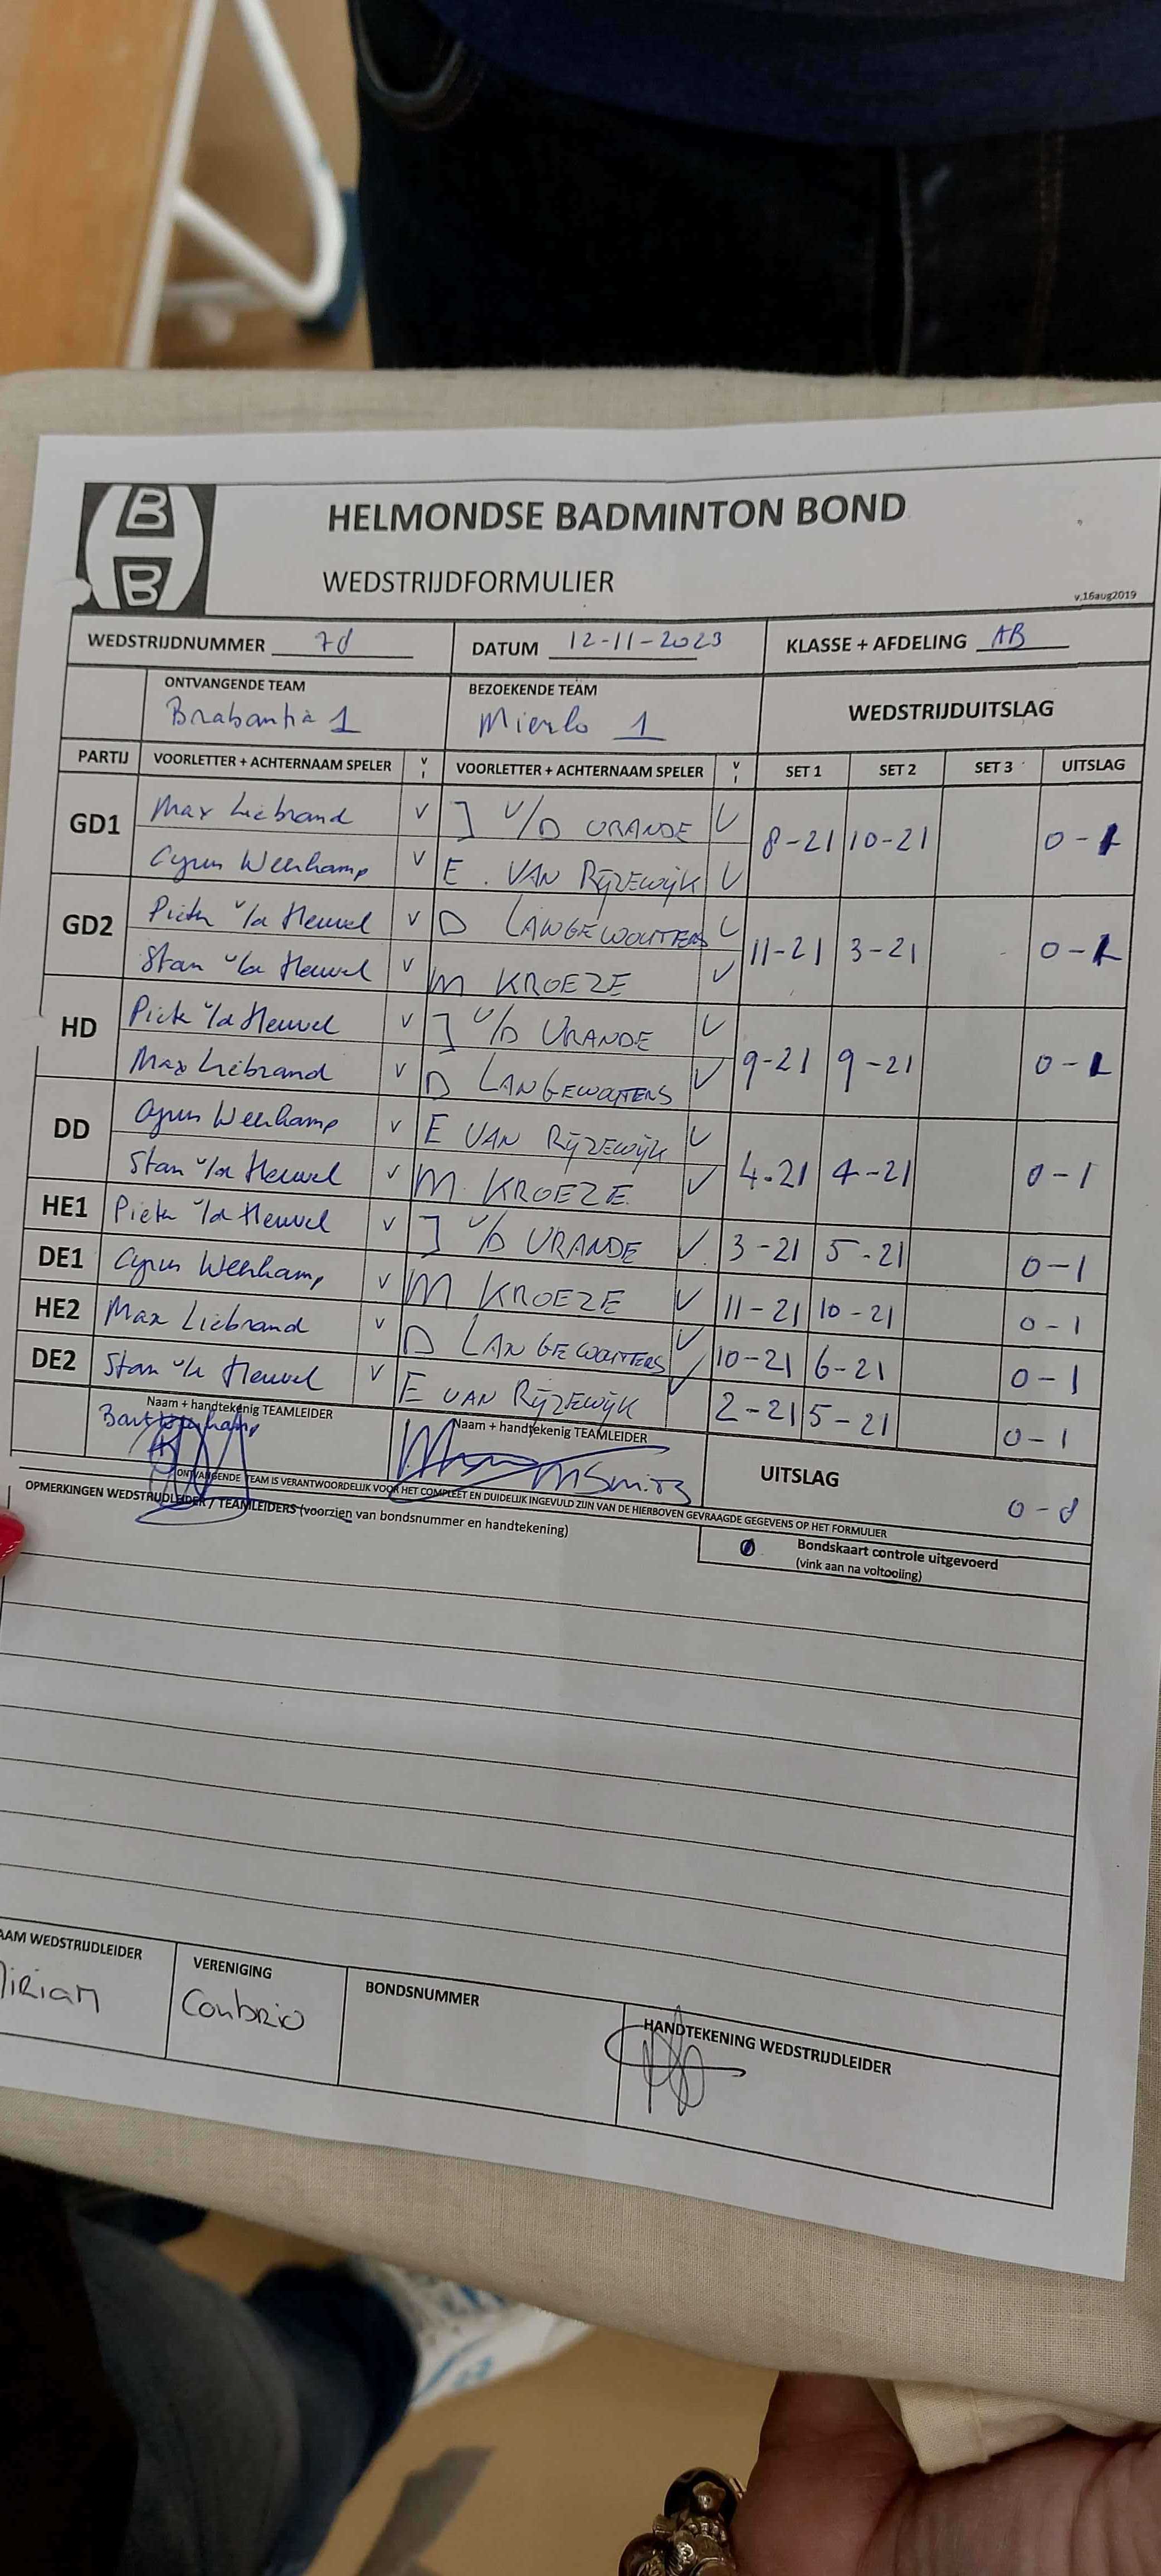 B
B
HELMONDSE BADMINTON BOND
WEDSTRIJDFORMULIER
v.16aug2019
WEDSTRIJDNUMMER 78 DATUM 12-11-2023 KLASSE + AFDELING AB
ONTVANGENDE TEAM BEZOEKENDE TEAM WEDSTRIJDUITSLAG
Brabantia 1 Mierlo 1
PARTIJ VOORLETTER + ACHTERNAAM SPELER V I VOORLETTER + ACHTERNAAM SPELER V I SET 1 SET 2 SET 3 UITSLAG
GD1 Max Liebrand V J V/D VRANDE V 8-21 10-21 0-1
Cyrun Wenhamp V E. VAN RIJZEWIJK V
GD2 Pieter v/d Heuvel V D LANGEWOUTERS V 11-21 3-21 0-1
Stan v/d Heuvel V M KROEZE V
HD Pieter v/d Heuvel V J V/D VRANDE V 9-21 9-21 0-1
Max Liebrand V D LANGEWOUTERS V
DD Cyrun Wenhamp V E VAN RIJZEWIJK V 4-21 4-21 0-1
Stan v/d Heuvel V M. KROEZE. V
HE1 Pieter v/d Heuvel V J V/D VRANDE V 3-21 5-21 0-1
DE1 Cyrun Wenhamp V M KROEZE V 11-21 10-21 0-1
HE2 Max Liebrand V D LANGEWOUTERS V 10-21 6-21 0-1
DE2 Stan v/d Heuvel V E VAN RIJZEWIJK V 2-21 5-21 0-1
Naam + handtekenig TEAMLEIDER Naam + handtekenig TEAMLEIDER UITSLAG 0-8
Bart MSmits
ONTVANGENDE TEAM IS VERANTWOORDELIJK VOOR HET COMPLEET EN DUIDELIJK INGEVULD ZIJN VAN DE HIERBOVEN GEVRAAGDE GEGEVENS OP HET FORMULIER
OPMERKINGEN WEDSTRIJDLEIDER / TEAMLEIDERS (voorzien van bondsnummer en handtekening)
Bondskaart controle uitgevoerd
(vink aan na voltooiing)
AAM WEDSTRIJDLEIDER VERENIGING BONDSNUMMER HANDTEKENING WEDSTRIJDLEIDER
iRiam Conbrio